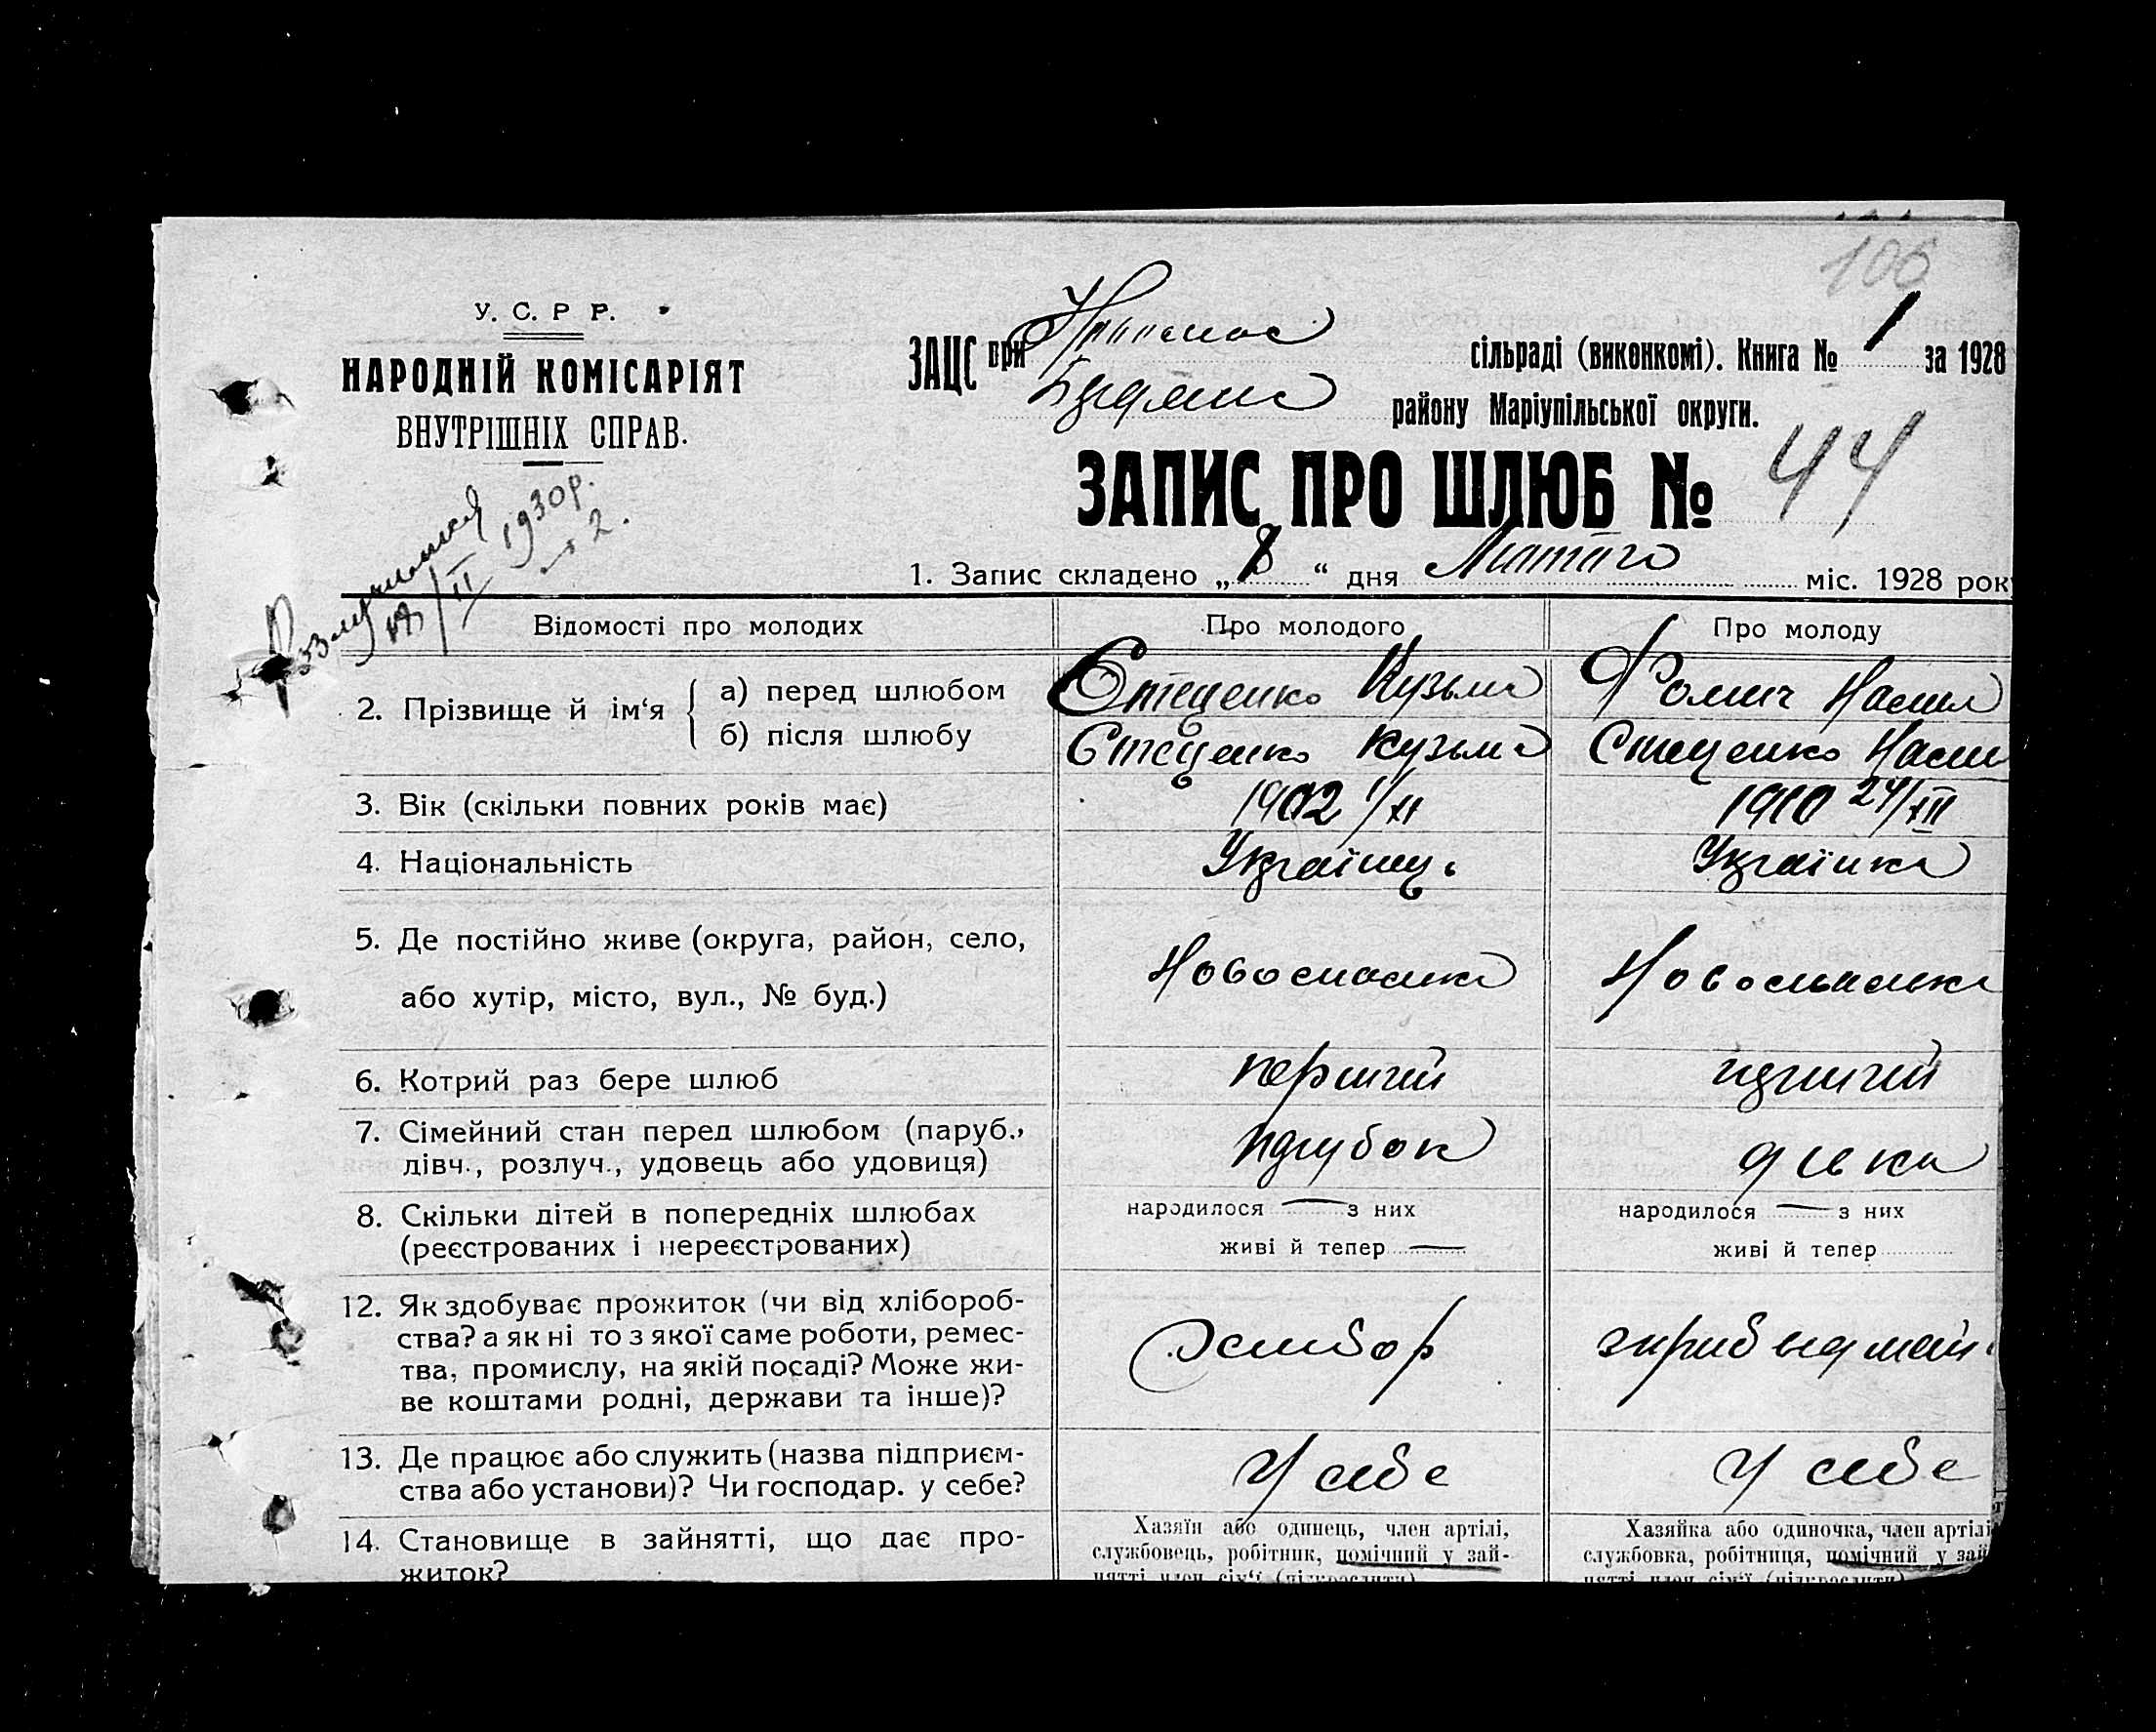 106
У. С. Р Р.
НАРОДНІЙ КОМІСАРІЯТ
ВНУТРІШНІХ СПРАВ.
ЗАЦС при сільраді (виконкомі). Книга № 1 за 1928
району Маріупільської округи.
ЗАПИС ПРО ШЛЮБ № 44
1. Запис складено „8“ дня Лютого міс. 1928 рок
Розлучилися
18/II 1930р.
№ 2.
Відомості про молодих
Про молодого
Про молоду
2. Прізвище й ім‘я
а) перед шлюбом
Стеценко Кузьма
Фомич
б) після шлюбу
Стеценко Кузьма
Стеценко
3. Вік (скільки повних років має)
1902 1/XI
1910 24/XII
4. Національність
Українець
Українка
5. Де постійно живе (округа, район, село,
або хутір, місто, вул., № буд.)
Новоспаська
Новоспаська
6. Котрий раз бере шлюб
перший
перший
7. Сімейний стан перед шлюбом (паруб.,
дівч., розлуч., удовець або удовиця)
парубок
дівка
8. Скільки дітей в попередніх шлюбах
(реєстрованих і нереєстрованих)
народилося — з них
живі й тепер —
народилося — з них
живі й тепер
12. Як здобуває прожиток (чи від хлібороб-
ства? а як ні то з якої саме роботи, ремес-
тва, промислу, на якій посаді? Може жи-
ве коштами родні, держави та інше)?
Хлібор
13. Де працює або служить (назва підприєм-
ства або установи)? Чи господар. у себе?
У себе
У себе
14. Становище в зайнятті, що дає про-
житок?
Хазяїн або одинець, член артілі,
службовець, робітник, помічний у зай-
нятті член сім‘ї (підкреслити)
Хазяйка або одиночка, член артілі
службовка, робітниця, помічний у зай
нятті член сім‘ї (підкреслити)